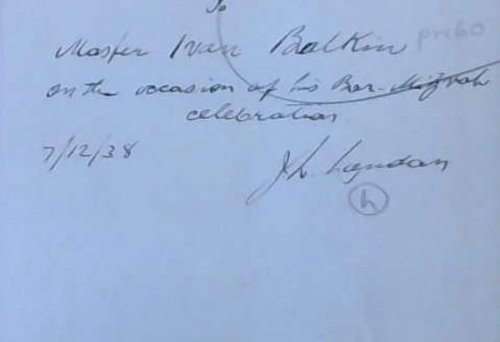 To
Master Ivan Balkin
on the occasion of his Bar-Mizvah
celebration
7/12/38
J. L. Landau
h